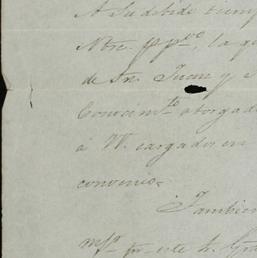 A su debido tiemp
Nbre. ppdo, la qu
de Sn. Juan y
Conocimto. otorgad
á V. cargados en
convenio.
Tambien